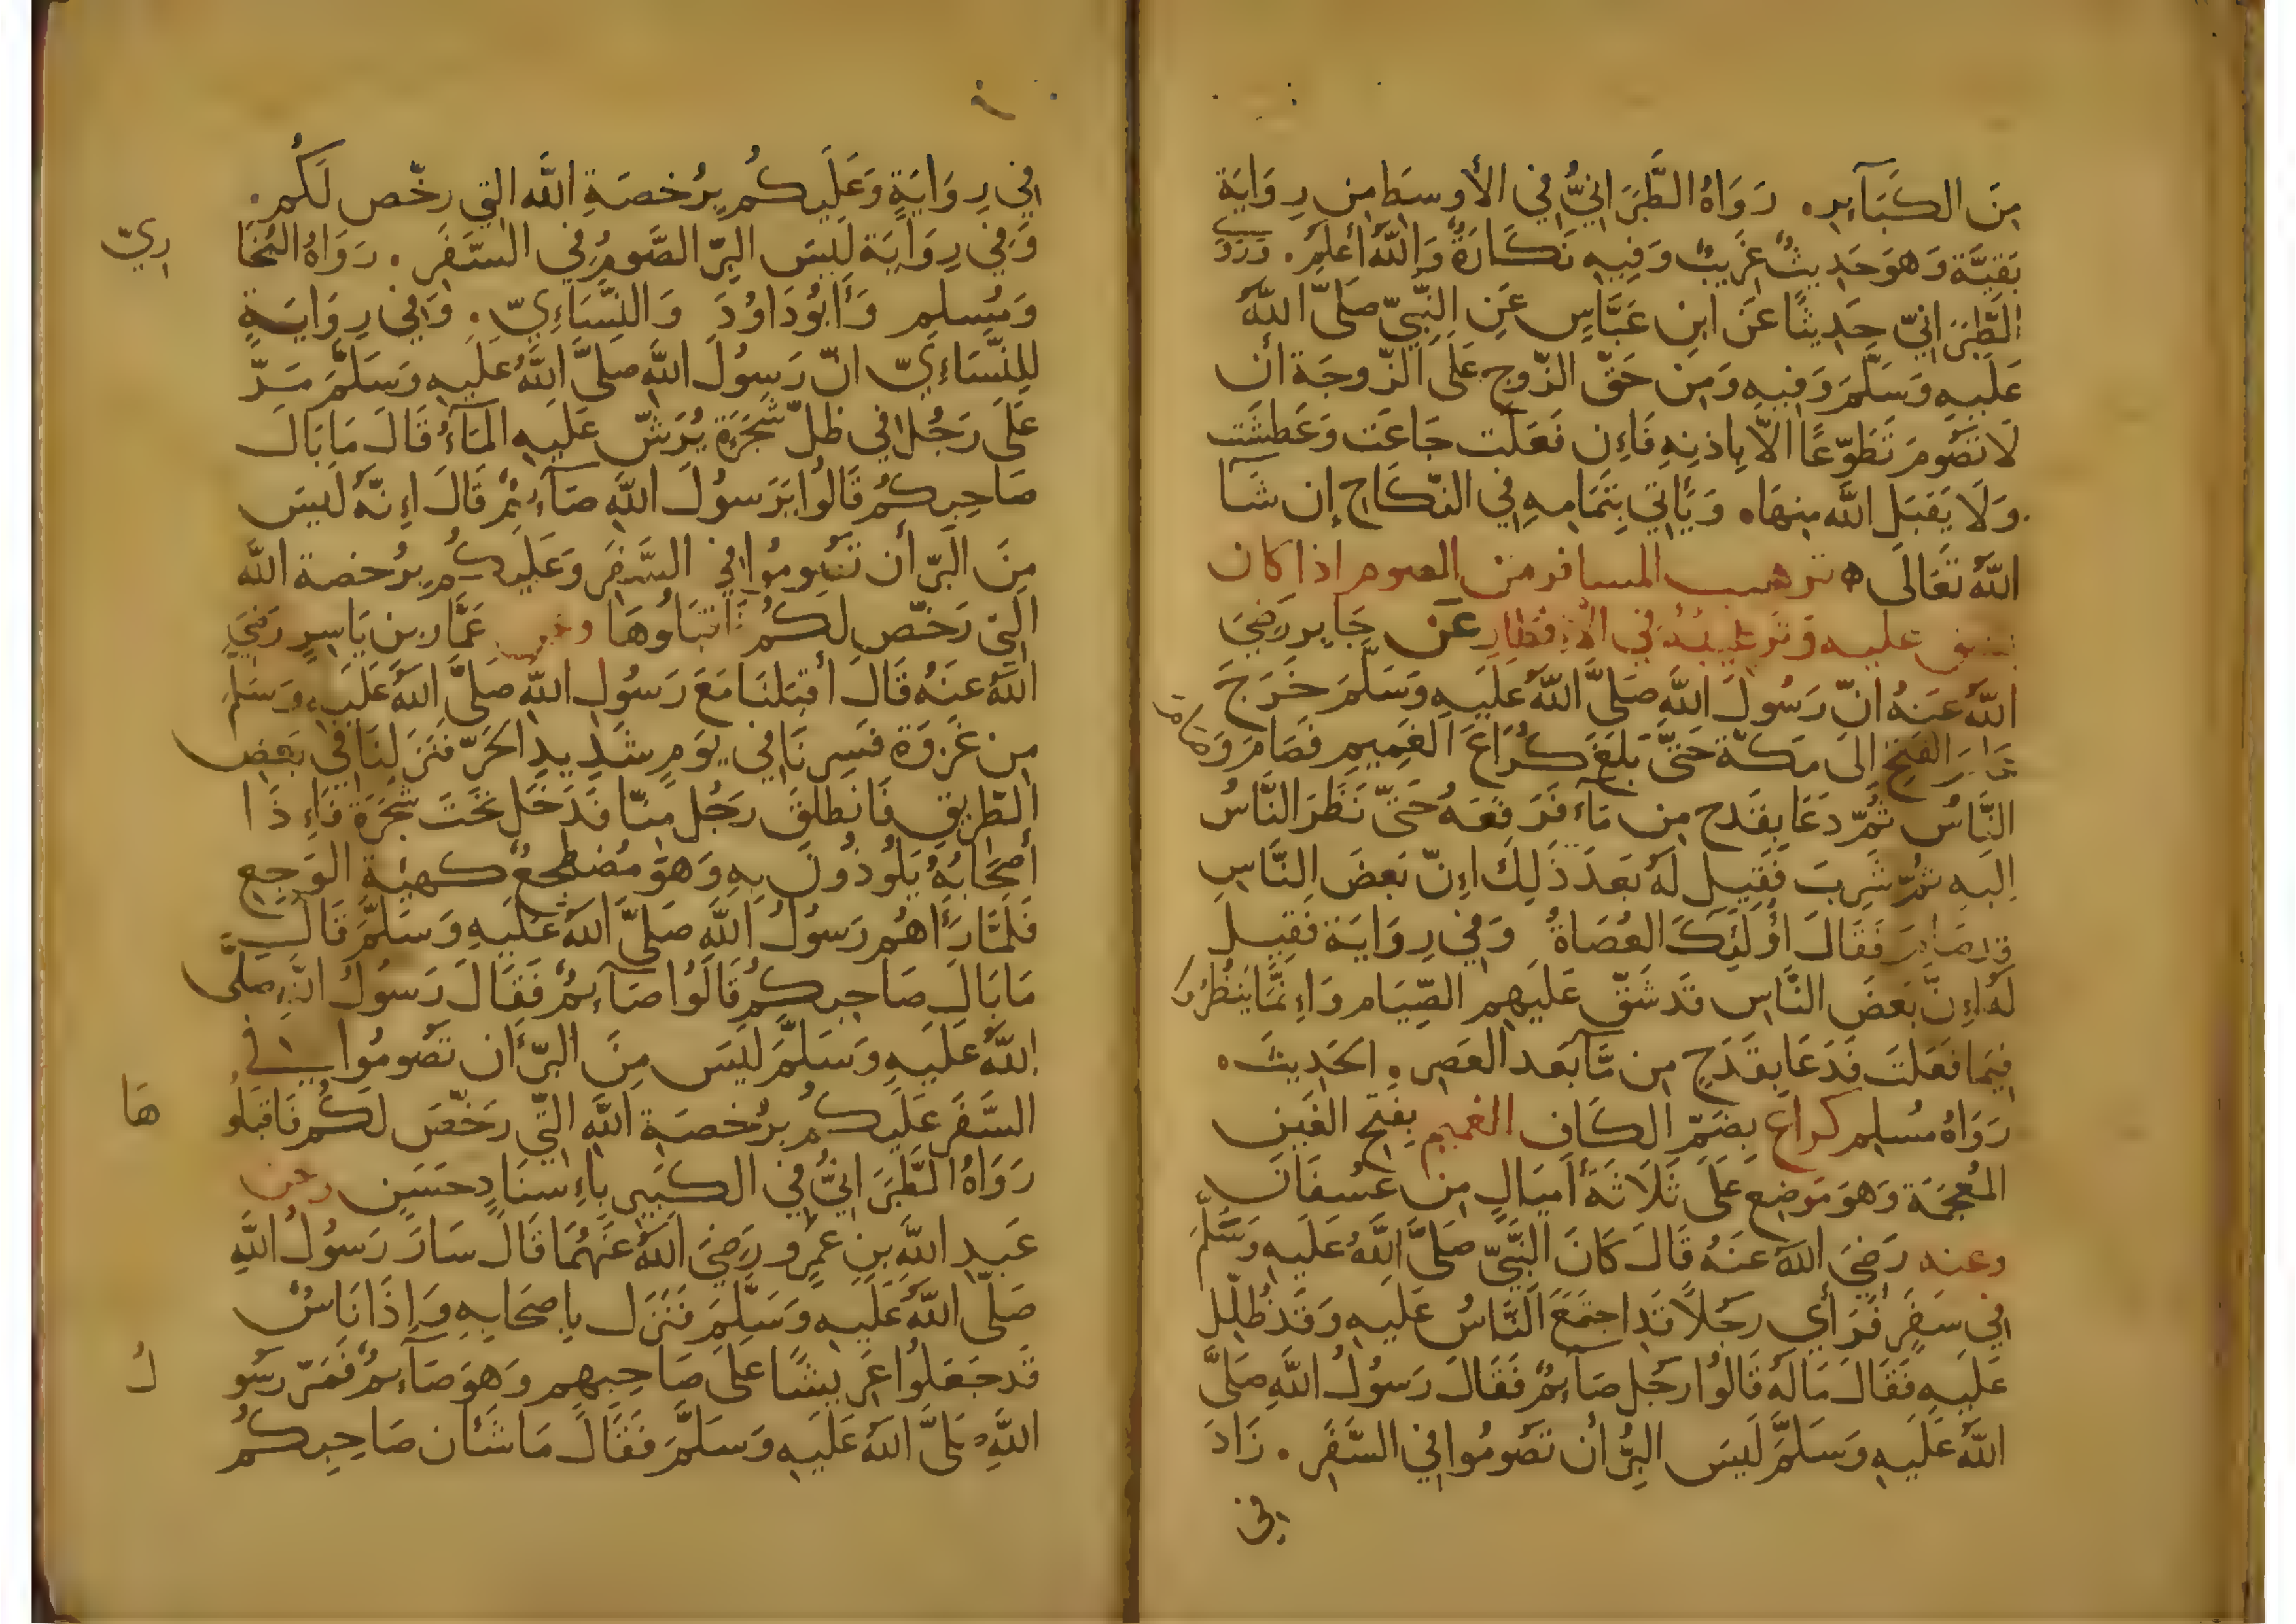 مِنَ الكَبَآيِرِ. رَوَاهُ الطَّبَرَانِيُّ فِي الأَوسَطِ مِن رِوَايَةِ
بَقِيَّة وَهوَ حَدِيثٌ غَرِيبٌ وَفِيهِ نَكَارَةٌ وَاللَّهُ أَعلَمُ. وَرَوَى
الطَّبَرَانِيّ حَدِيثًا عَنَ ابنِ عَبَّاسٍ عَنِ النَّبِيّ صَلَّى اللَّهُ
عَلَيهِ وَسَلَّمَ وَفِيهِ وَمِن حَقِّ الزَّوجِ عَلَى الزَّوجَة أَن
لَا تَصُومَ تَطَوُّعًا الَّا بِاذنِهِ فَاءِن فَعَلَت جَاعَت وَعَطِشَت
وَلَا يَقبَل اللَّه مِنهَا. وَيَأتِي بِتَمَامِهِ فِي النِّكَاحِ إِن شَآ
اللَّهُ تَعَالَى ه ترهيب المسافر من الصوم اذا كان
يشق عليه وَترغيبهُ فِي الاءِفطَارِ عَن جَابِر رَضِيَ
اللَّهُ عَنهُ انّ رَسُولَ اللَّهِ صَلَّى اللَّهُ عَلَيهِ وَسَلَّمَ خَرَجَ
عَامَ الفَتحِ الَى مَكَّة حَتَّى بَلَغَ كُرَاعَ الغَمِيمِ فَصَامَ وَصَامَ
النَّاسُ ثُمَّ دَعَا بِقَدَحٍ مِن مَآءٍ فَرَفَعَهُ حَتَّى نَظَرَ النَّاسُ
اِلَيهِ ثُمَّ شَرِبَ فَقِيلَ لَهُ بَعدَ ذَلِكَ اءِنّ بَعضَ النَّاسِ
قَد صَامَ فَقَالَ أُولَئِكَ العُصَاةُ وَفِي رِوَايَة فَقِيلَ
لَهُ اءِنَّ بَعضَ النَّاسِ قَد شَقَّ عَلَيهِم الصِّيَام وَاءِنَّمَا يَنظُرُونَ
فِيمَا فَعَلتَ فَدَعَا بِقَدَحٍ مِن مَّآ بَعد العَصرِ. الحَدِيثَ.
رَوَاهُ مُسلِم كراع بِضَمِّ الكَافِ الغميم بِفَتحِ الغَينِ
المُعجَمَة وَهوَ مَوضِع عَلَى ثَلَاثَة أَميَالٍ مِن عُسفَان
وعنه رَضِيَ اللَّهُ عَنهُ قَالَ كَانَ النَّبِيّ صَلَّى اللَّهُ عَلَيهِ وَسَلَّمَ
فِي سَفَرٍ فَرَأَي رَجُلًا قَدِ اجتَمَعَ النَّاسُ عَلَيهِ وَقَد ظُلِّلَ
عَلَيهِ فَقَالَ مَالَهُ قَالُوا رَجُل صَآئِمٌ فَقَالَ رَسُولُ اللَّهِ صَلَّى
اللَّهُ عَلَيهِ وَسَلَّمَ لَيسَ البِرُّ أَن تَصُومُوا فِي السَّفَرِ. زَادَ
فِي
فِي رِوَايَةٍ وَعَلَيكُم بِرُخصَةِ اللَّه التِي رخّص لَكُم.
وَفِي رِوَايَة لَيسَ البِرّ الصَّومُ فِي السَّفَرِ. رَوَاهُ البُخَا
رِيّ
وَمُسلِم وَأَبُو دَاوُدَ وَالنَّسَاءِيّ. وَفِي رِوَايَةٍ
لِلنَّسَاءِيّ انّ رَسُولَ اللَّهِ صَلَّى اللَّهُ عَلَيهِ وَسَلَّمَ مَرَّ
عَلَى رَجُل فِي ظِلّ شَجَرَة يُرَشّ عَلَيهِ المَآءُ قَالَ مَا بَالَ
صَاحِبِكُم قَالُوا يَرَسُولَ اللَّهِ صَآءِمٌ قَالَ اءِنَّهُ لَيسَ
مِنَ البِرّ أَن تَصُومُوا فِي السَّفَرِ وَعَلَيكُم بِرُخصة اللَّه
التِي رَخّص لَكُم فَاقبَلُوهَا وعن عَمَّار بن يَاسِرٍ رَضِيَ
اللَّهُ عَنهُ قَالَ أَقبَلنَا مَعَ رَسُولِ اللَّهِ صَلَّى اللَّهُ عَلَيهِ وَسَلَّمَ
مِن غَزوَة فَسِرنَا فِي يَومٍ شَدِيدِ الحَرّ فَنَزَلنَا فِي بَعضِ
الطَّرِيقِ فَانطَلَقَ رَجُل مِنّا فَدَخَل تَحتَ شَجَرَة فَاءِذَا
أَصحَابُهُ يَلُوذُونَ بِهِ وَهوَ مُضطَجِعٌ كَهيئَةِ الوَجِعِ
فَلَمَّا رَأَاهُم رَسُولُ اللَّهِ صَلَّى اللَّهُ عَلَيهِ وَسَلَّمَ قَالَ
مَا بَالَ صَاحِبِكُم قَالُوا صَآئِمٌ فَقَالَ رَسُولُ اللَّهِ صَلَّى
اللَّهُ عَلَيهِ وَسَلَّمَ لَيسَ مِنَ البِرّ أَن تَصُومُوا فِي
السَّفَرِ عَلَيكُم بِرُخصَةِ اللَّهِ التِّي رَخّصَ لَكُم فَاقبَلُو
هَا
رَوَاهُ الطَّبَرَانِيُّ فِي الكَبِيرِ بِاءِسنَادٍ حَسَنٍ وعن
عَبدِ اللَّهِ بنِ عَمرٍو رَضِيَ اللَّهُ عَنهُمَا قَالَ سَارَ رَسُولُ اللَّهِ
صَلَّى اللَّهُ عَلَيهِ وَسَلَّمَ فَنَزَلَ بِاصحَابِهِ وَاِذَا نَاسٌ
قَد جَعَلُوا عَرِيشًا عَلَى صَاحِبِهِم وَهوَ صَآئِمٌ فَمَرّ رَسُو
لُ
اللَّهِ صَلَّى اللَّهُ عَلَيهِ وَسَلَّمَ فَقَالَ مَا شَئَان صَاحِبِكُم